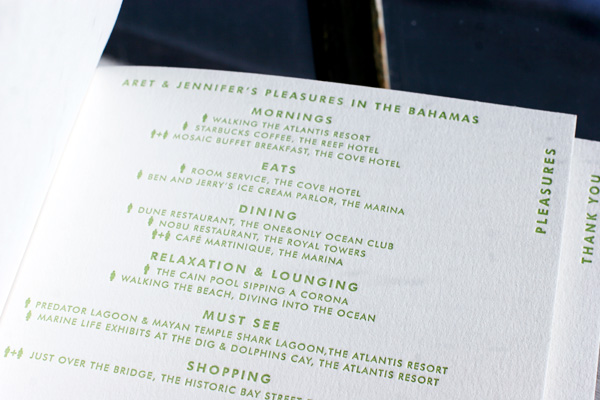 ARET & JENNIFER'S PLEASURES IN THE BAHAMAS
MORNINGS
WALKING THE ATLANTIS RESORT
STARBUCKS COFFEE, THE REEF HOTEL
MOSAIC BUFFET BREAKFAST, THE COVE HOTEL
EATS
ROOM SERVICE, THE COVE HOTEL
BEN AND JERRY'S ICE CREAM PARLOR, THE MARINA
DINING
DUNE RESTAURANT, THE ONE&ONLY OCEAN CLUB
NOBU RESTAURANT, THE ROYAL TOWERS
CAFÉ MARTINIQUE, THE MARINA
RELAXATION & LOUNGING
THE CAIN POOL SIPPING A CORONA
WALKING THE BEACH, DIVING INTO THE OCEAN
MUST SEE
PREDATOR LAGOON & MAYAN TEMPLE SHARK LAGOON, THE ATLANTIS RESORT
MARINE LIFE EXHIBITS AT THE DIG & DOLPHINS CAY, THE ATLANTIS RESORT
SHOPPING
JUST OVER THE BRIDGE, THE HISTORIC BAY STREET
PLEASURES
THANK YOU